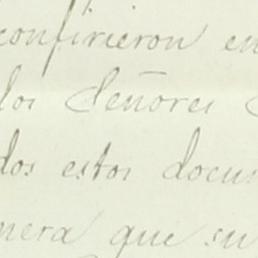 confirieron en
los Señores
dos estos docu
nera que su